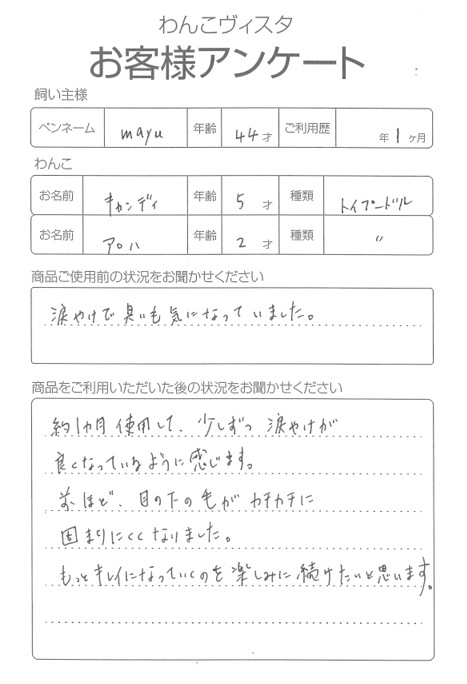 わんこヴィスタ
お客様アンケート
飼い主様
ペンネーム mayu 年齢 44才 ご利用歴 年 1ヶ月
わんこ
お名前 キャンディ 年齢 5才 種類 トイプードル
お名前 アロハ 年齢 2才 種類 〃
商品ご使用前の状況をお聞かせください
涙やけで臭いも気になっていました。
商品をご利用いただいた後の状況をお聞かせください
約1ヵ月使用して、少しずつ涙やけが
良くなっているように感じます。
前ほど、目の下の毛がカチカチに
固まりにくくなりました。
もっとキレイになっていくのを楽しみに続けたいと思います。